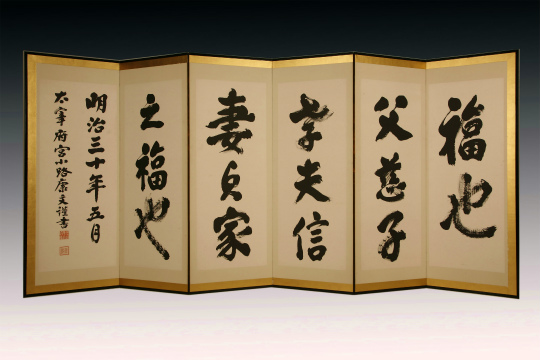 福也
父慈子
孝夫信
妻貞家
之福也
明治三十年五月
太宰府宮小路康文謹書